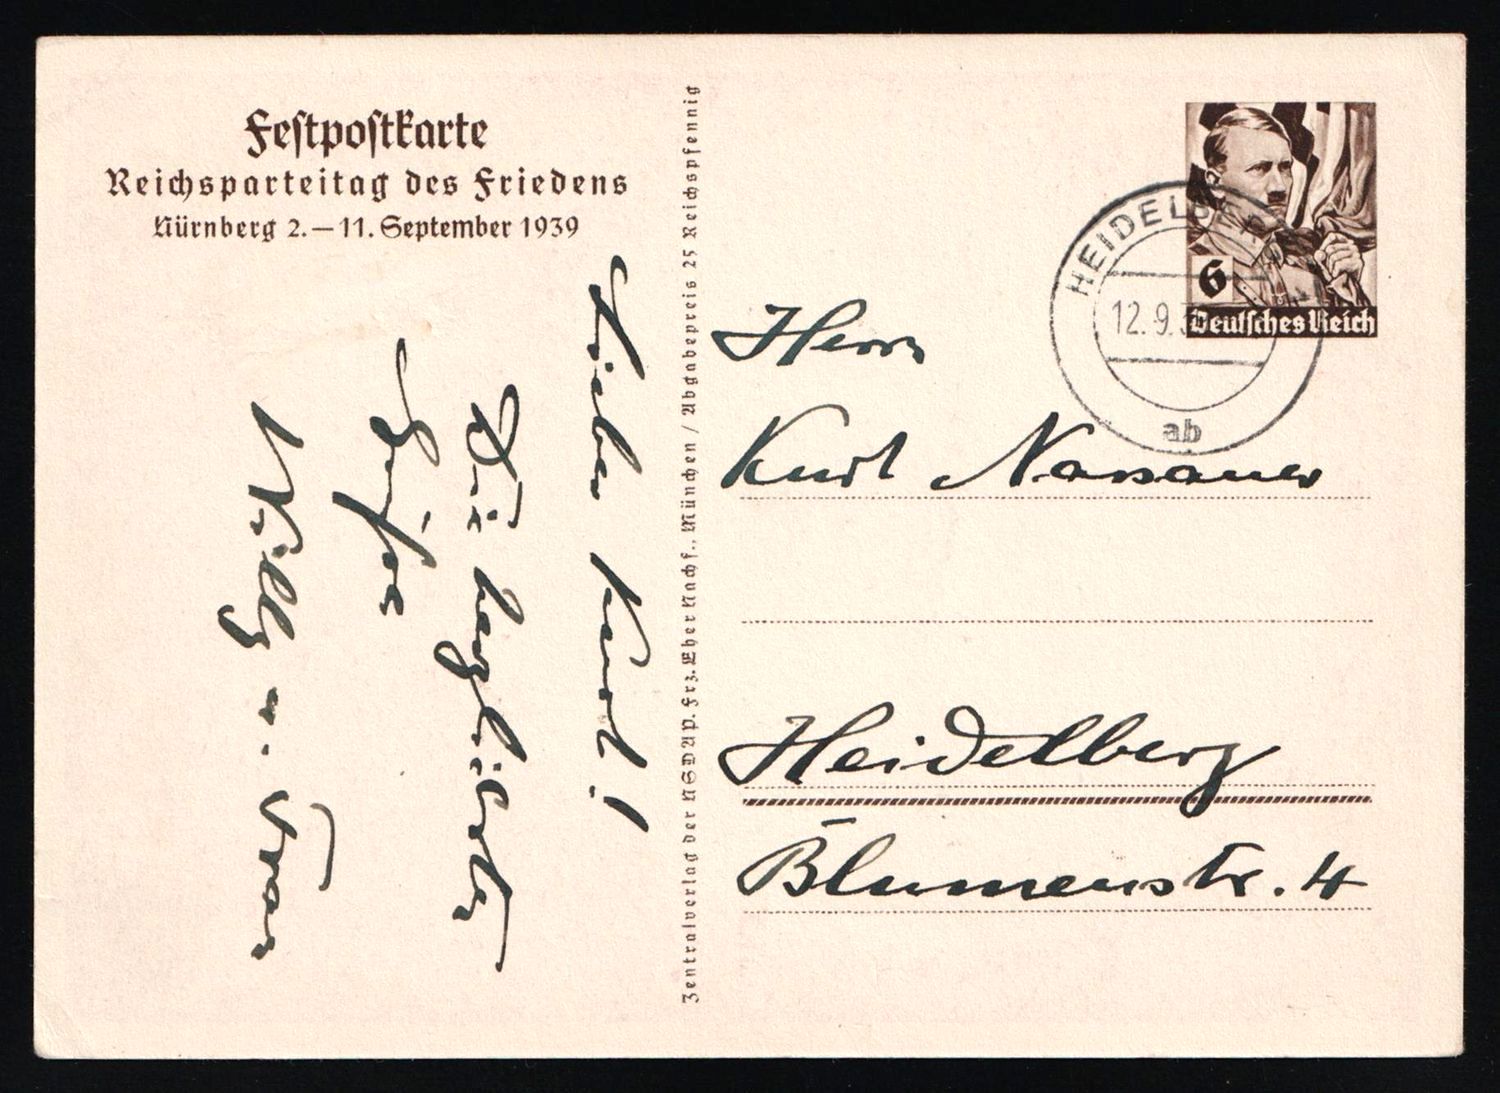 Festpostkarte
Reichsparteitag des Friedens
Nürnberg 2.–11. September 1939
Lieber Kurt!
Die herzlichsten
Grüße
Willy u. Frau
Zentralverlag der NSDAP. Frz. Eher Nachf., München / Abgabepreis 25 Reichspfennig
6
Deutsches Reich
HEIDELB
12.9.3
ab
Herrn
Kurt Nassauer
Heidelberg
Blumenstr. 4